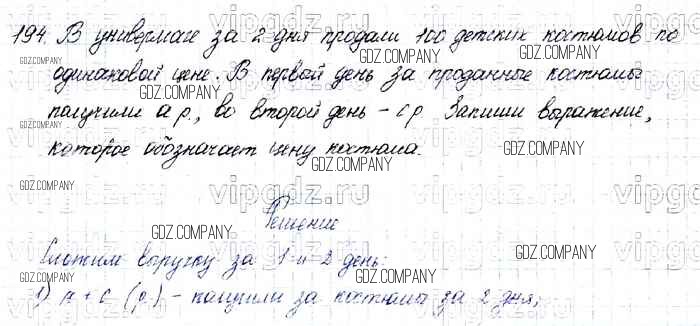 194. В универмаге за 2 дня продали 100 детских костюмов по
одинаковой цене. В первый день за проданные костюмы
получили a р., во второй день – c р. Запиши выражение,
которое обозначает цену костюма.
Решение
Сложим выручку за 1 и 2 день:
1) a + c (р.) – получили за костюмы за 2 дня;
GDZ.COMPANY
vipgdz.ru